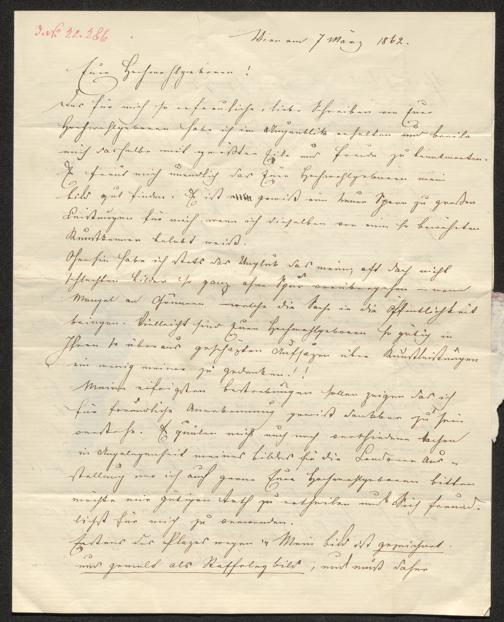 J.N. 32.386
Wien am 7 März 1862.
Euer Hochwohlgeboren!
Das für mich so erfreuliche, liebe Schreiben von Euer
Hochwohlgeboren habe ich im Augenblike erhalten und beeile
mich dasselbe mit größter Eile und Freude zu beantworten.
Es freut mich unendlich das Euer Hochwohlgeboren mein
Bild gut finden. Es ist gewiß ein neuer Sporn zu großen
Leistungen für mich, wenn ich dieselben von einem so bewährten
Kunstkenner belobt weiß.
Ohnehin habe ich stets das Unglük das meine oft doch nicht
schlechten Bilder so ganz ohne Spur vorübergehen – vom
Mangel an Gönnern – welche die Sache in die Öffentlichkeit
bringen. Vielleicht sind Euer Hochwohlgeboren so gütig in
Ihren so überaus geschäzten Aufsäzen über Kunstleistungen
ein wenig meiner zu gedenken!!
Meine eifrigsten Bestrebungen sollen zeigen das ich
für freundliche Anerkennung gewiß dankbar zu sein
verstehe. Es quälen mich auch noch verschiedene Sachen
in Angelegenheit meines Bildes für die Londoner Aus-
stellung wo ich auch gerne Euer Hochwohlgeboren bitten
möchte mir gütigen Rath zu ertheilen und Sich freund-
lichst für mich zu verwenden.
Erstens des Plazes wegen. Mein Bild ist gezeichnet
und gemalt als Staffeleybild, und muß daher